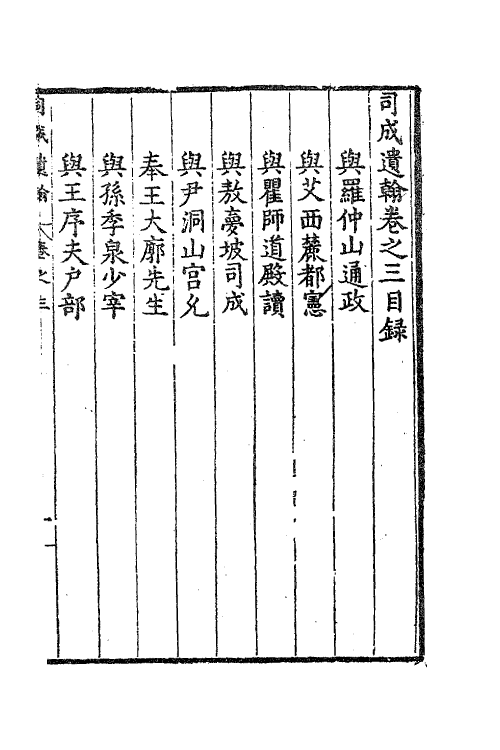 司成遺翰卷之三目録
與羅仲山通政
與艾西麓都憲
與瞿師道殿讀
與敖夢坡司成
與尹洞山宫允
奉王大廓先生
與孫季泉少宰
與王序夫户部
司成遺翰 卷之三 一